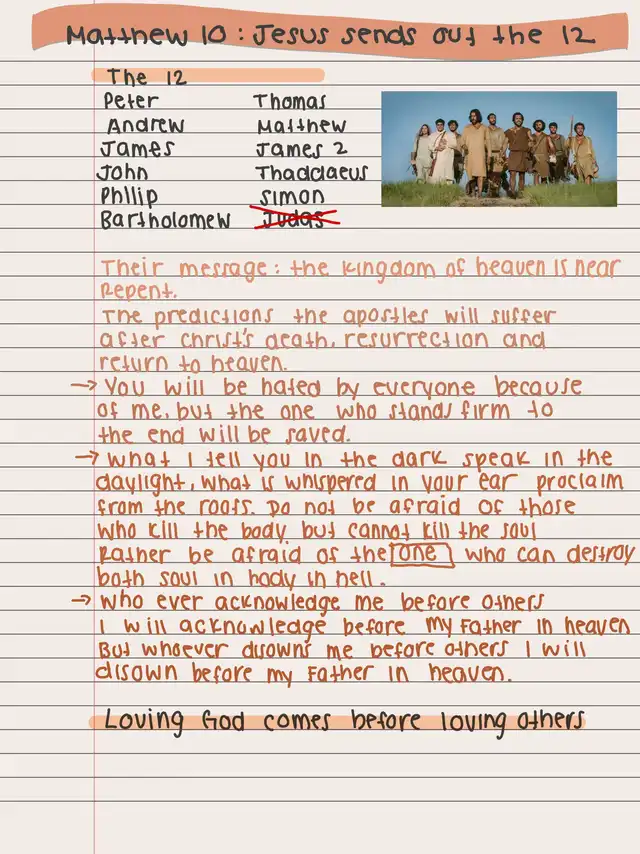 Matthew 10: Jesus sends out the 12
The 12
Peter Thomas
Andrew Matthew
James James 2
John Thaddaeus
Philip Simon
Bartholomew Judas
Their message: the kingdom of heaven is near
Repent.
The predictions the apostles will suffer
after Christ's death, resurrection and
return to heaven.
→ You will be hated by everyone because
of me, but the one who stands firm to
the end will be saved.
→ What I tell you in the dark speak in the
daylight, what is whispered in your ear proclaim
from the roofs. Do not be afraid of those
who kill the body but cannot kill the soul
Rather be afraid of the one who can destroy
both soul in body in hell.
→ Who ever acknowledge me before others
I will acknowledge before my Father in heaven
But whoever disowns me before others I will
disown before my Father in heaven.
Loving God comes before loving others